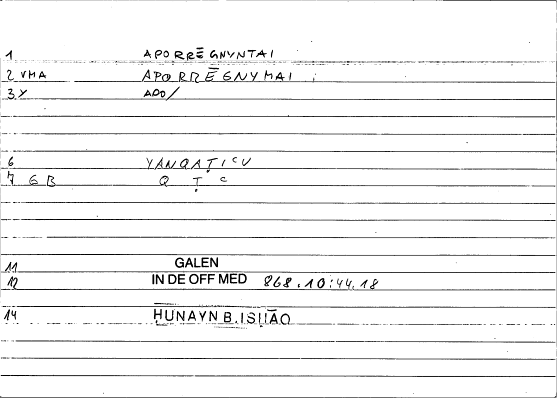 1 APORRĒGNYNTAI
2 VMA APORRĒGNYMAI
3 Y APO/
6 YANQAṬICU
7 GB Q Ṭ C
11 GALEN
12 IN DE OFF MED 868.10:44.18
14 ḤUNAYN B. ISḤĀQ